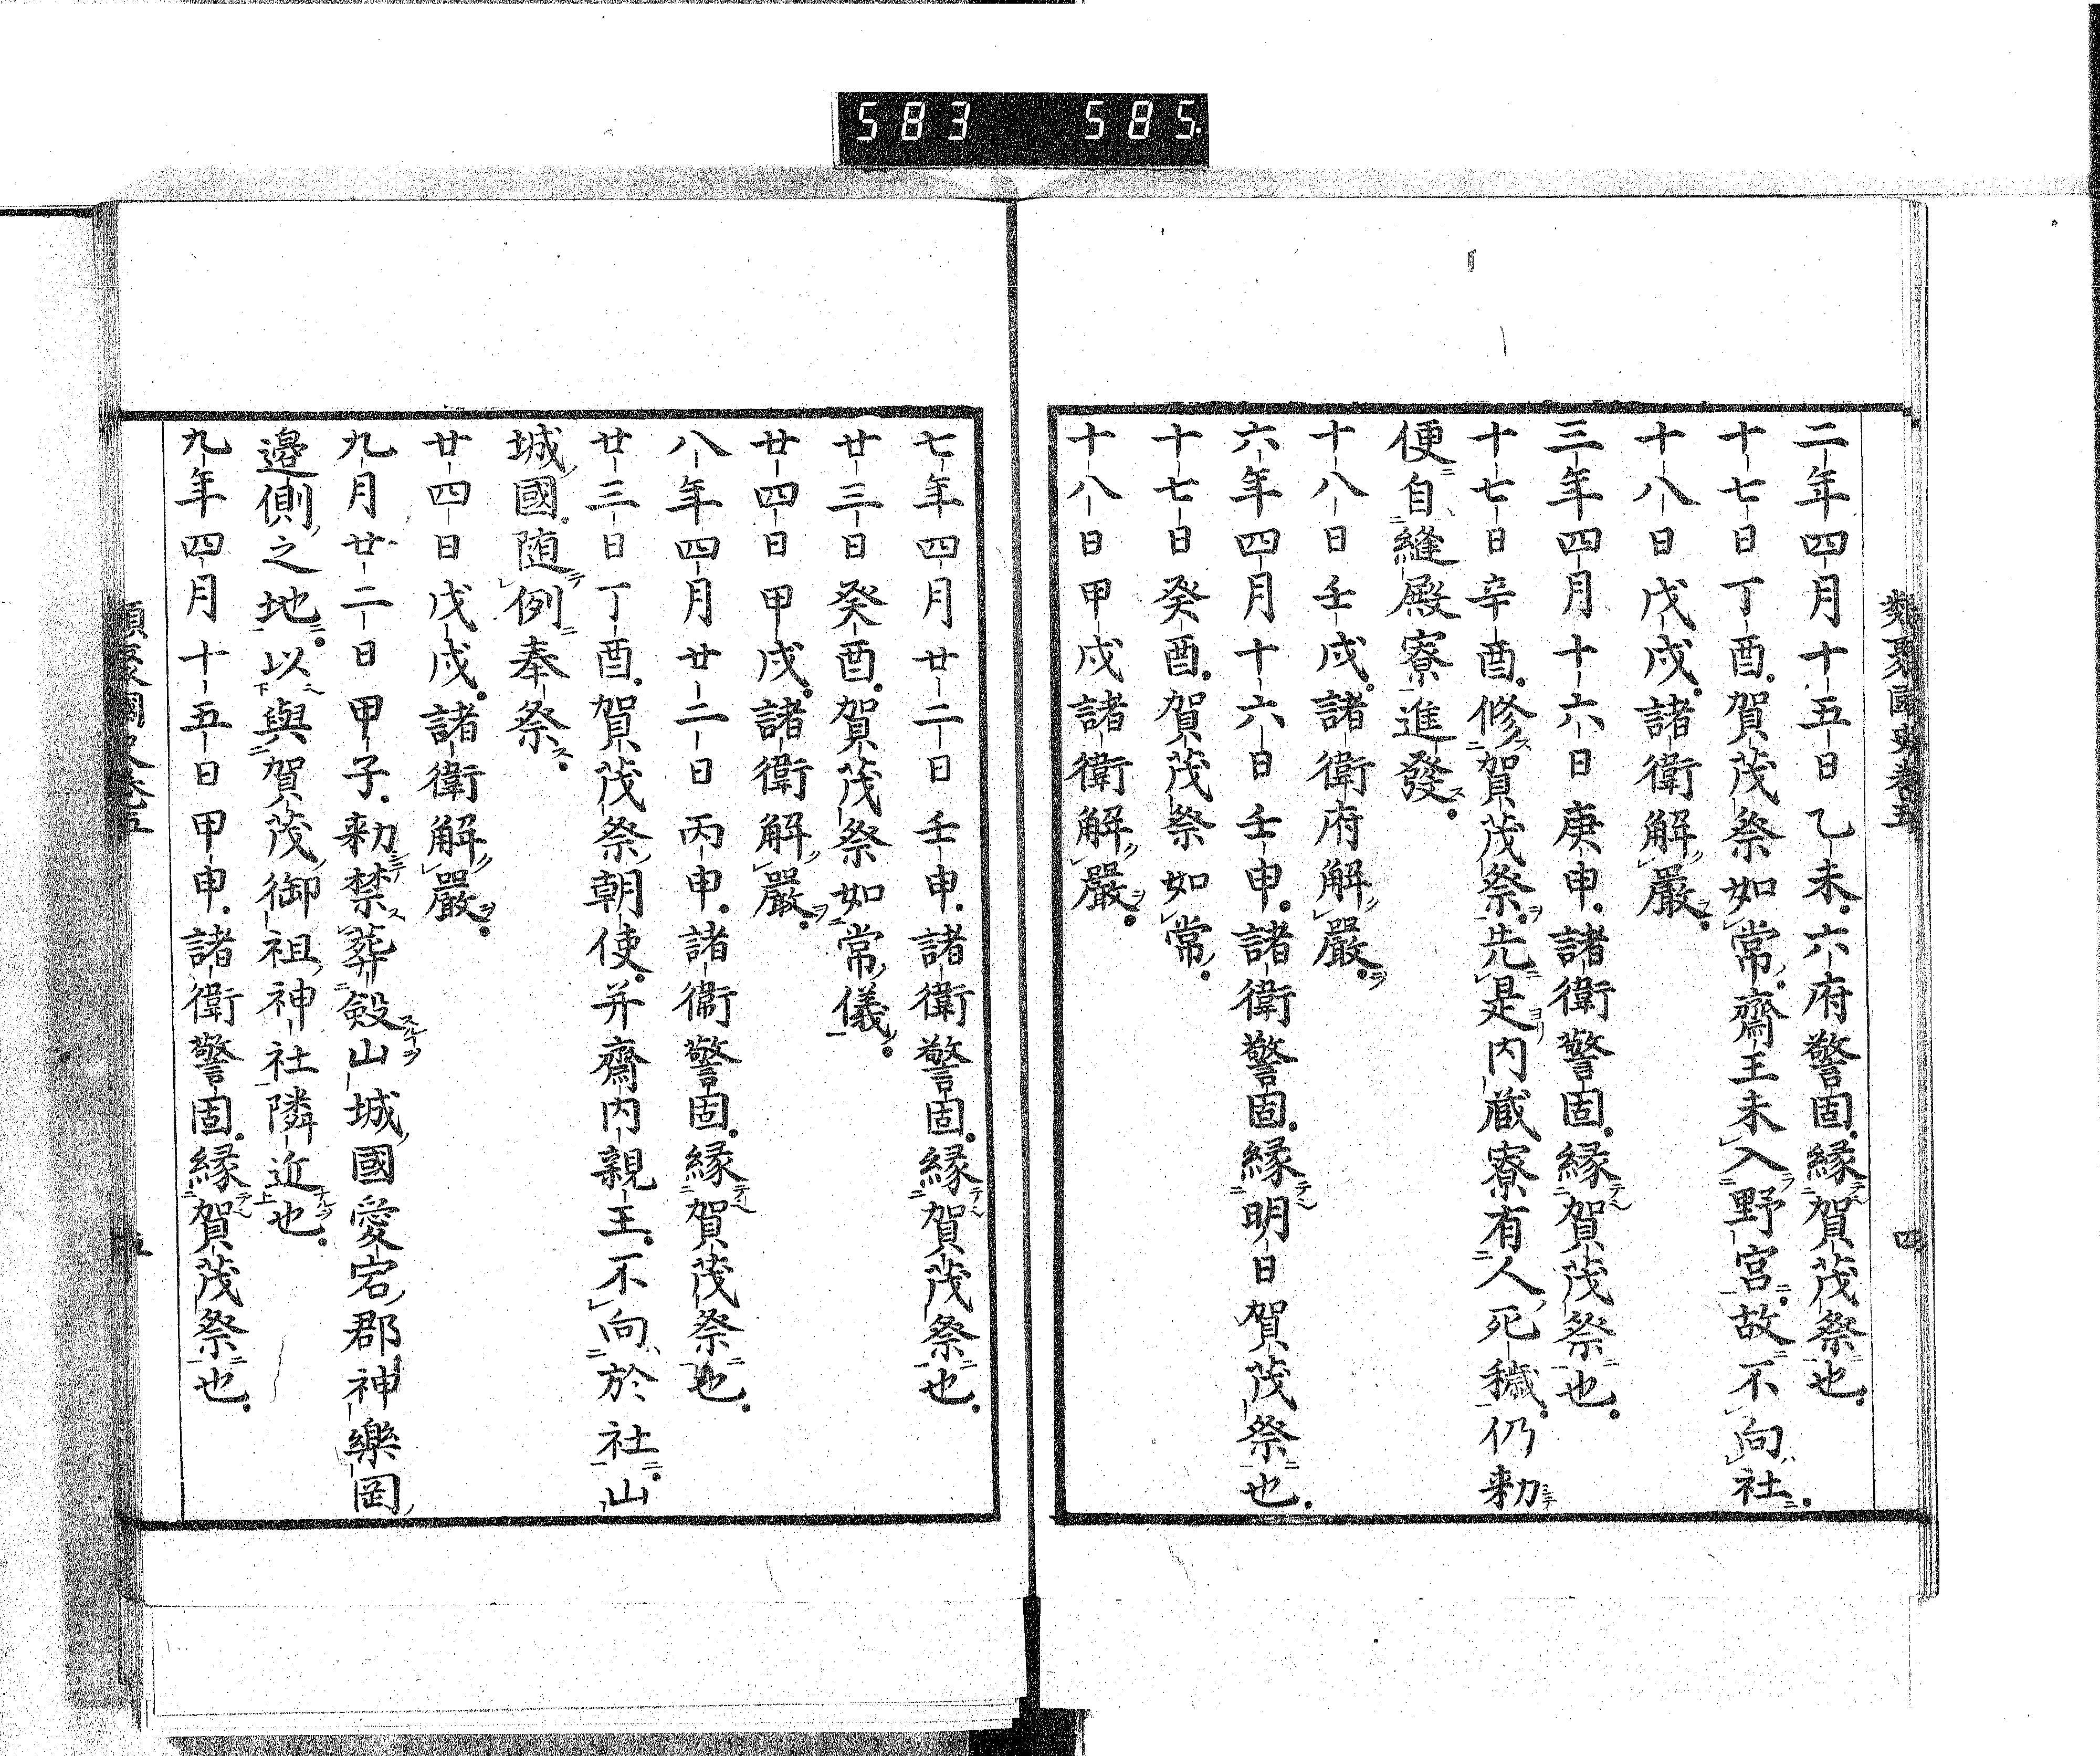 583 585
類聚國史卷五 四
二年四月十五日乙未。六府警固。縁賀茂祭也。
十七日丁酉。賀茂祭如常。齋王未入野宮。故不向社。
十八日戊戌。諸衛解嚴。
三年四月十六日庚申。諸衛警固。縁賀茂祭也。
十七日辛酉。修賀茂祭。先是内藏寮有人死穢。仍勅
便自縫殿寮進發。
十八日壬戌。諸衛府解嚴。
六年四月十六日壬申。諸衛警固。縁明日賀茂祭也。
十七日癸酉。賀茂祭如常。
十八日甲戌諸衛解嚴。
七年四月廿二日壬申。諸衛警固。縁賀茂祭也。
廿三日癸酉。賀茂祭如常儀。
廿四日甲戌。諸衛解嚴。
八年四月廿二日丙申。諸衛警固。縁賀茂祭也。
廿三日丁酉。賀茂祭朝使。并齋内親王。不向於社。山
城國。随例奉祭。
廿四日戊戌。諸衛解嚴。
九月廿二日甲子。勅禁葬斂山城國愛宕郡神樂岡
邊側之地。以與賀茂御祖神社隣近也。
九年四月十五日甲申。諸衛警固。縁賀茂祭也。
類聚國史卷五 五